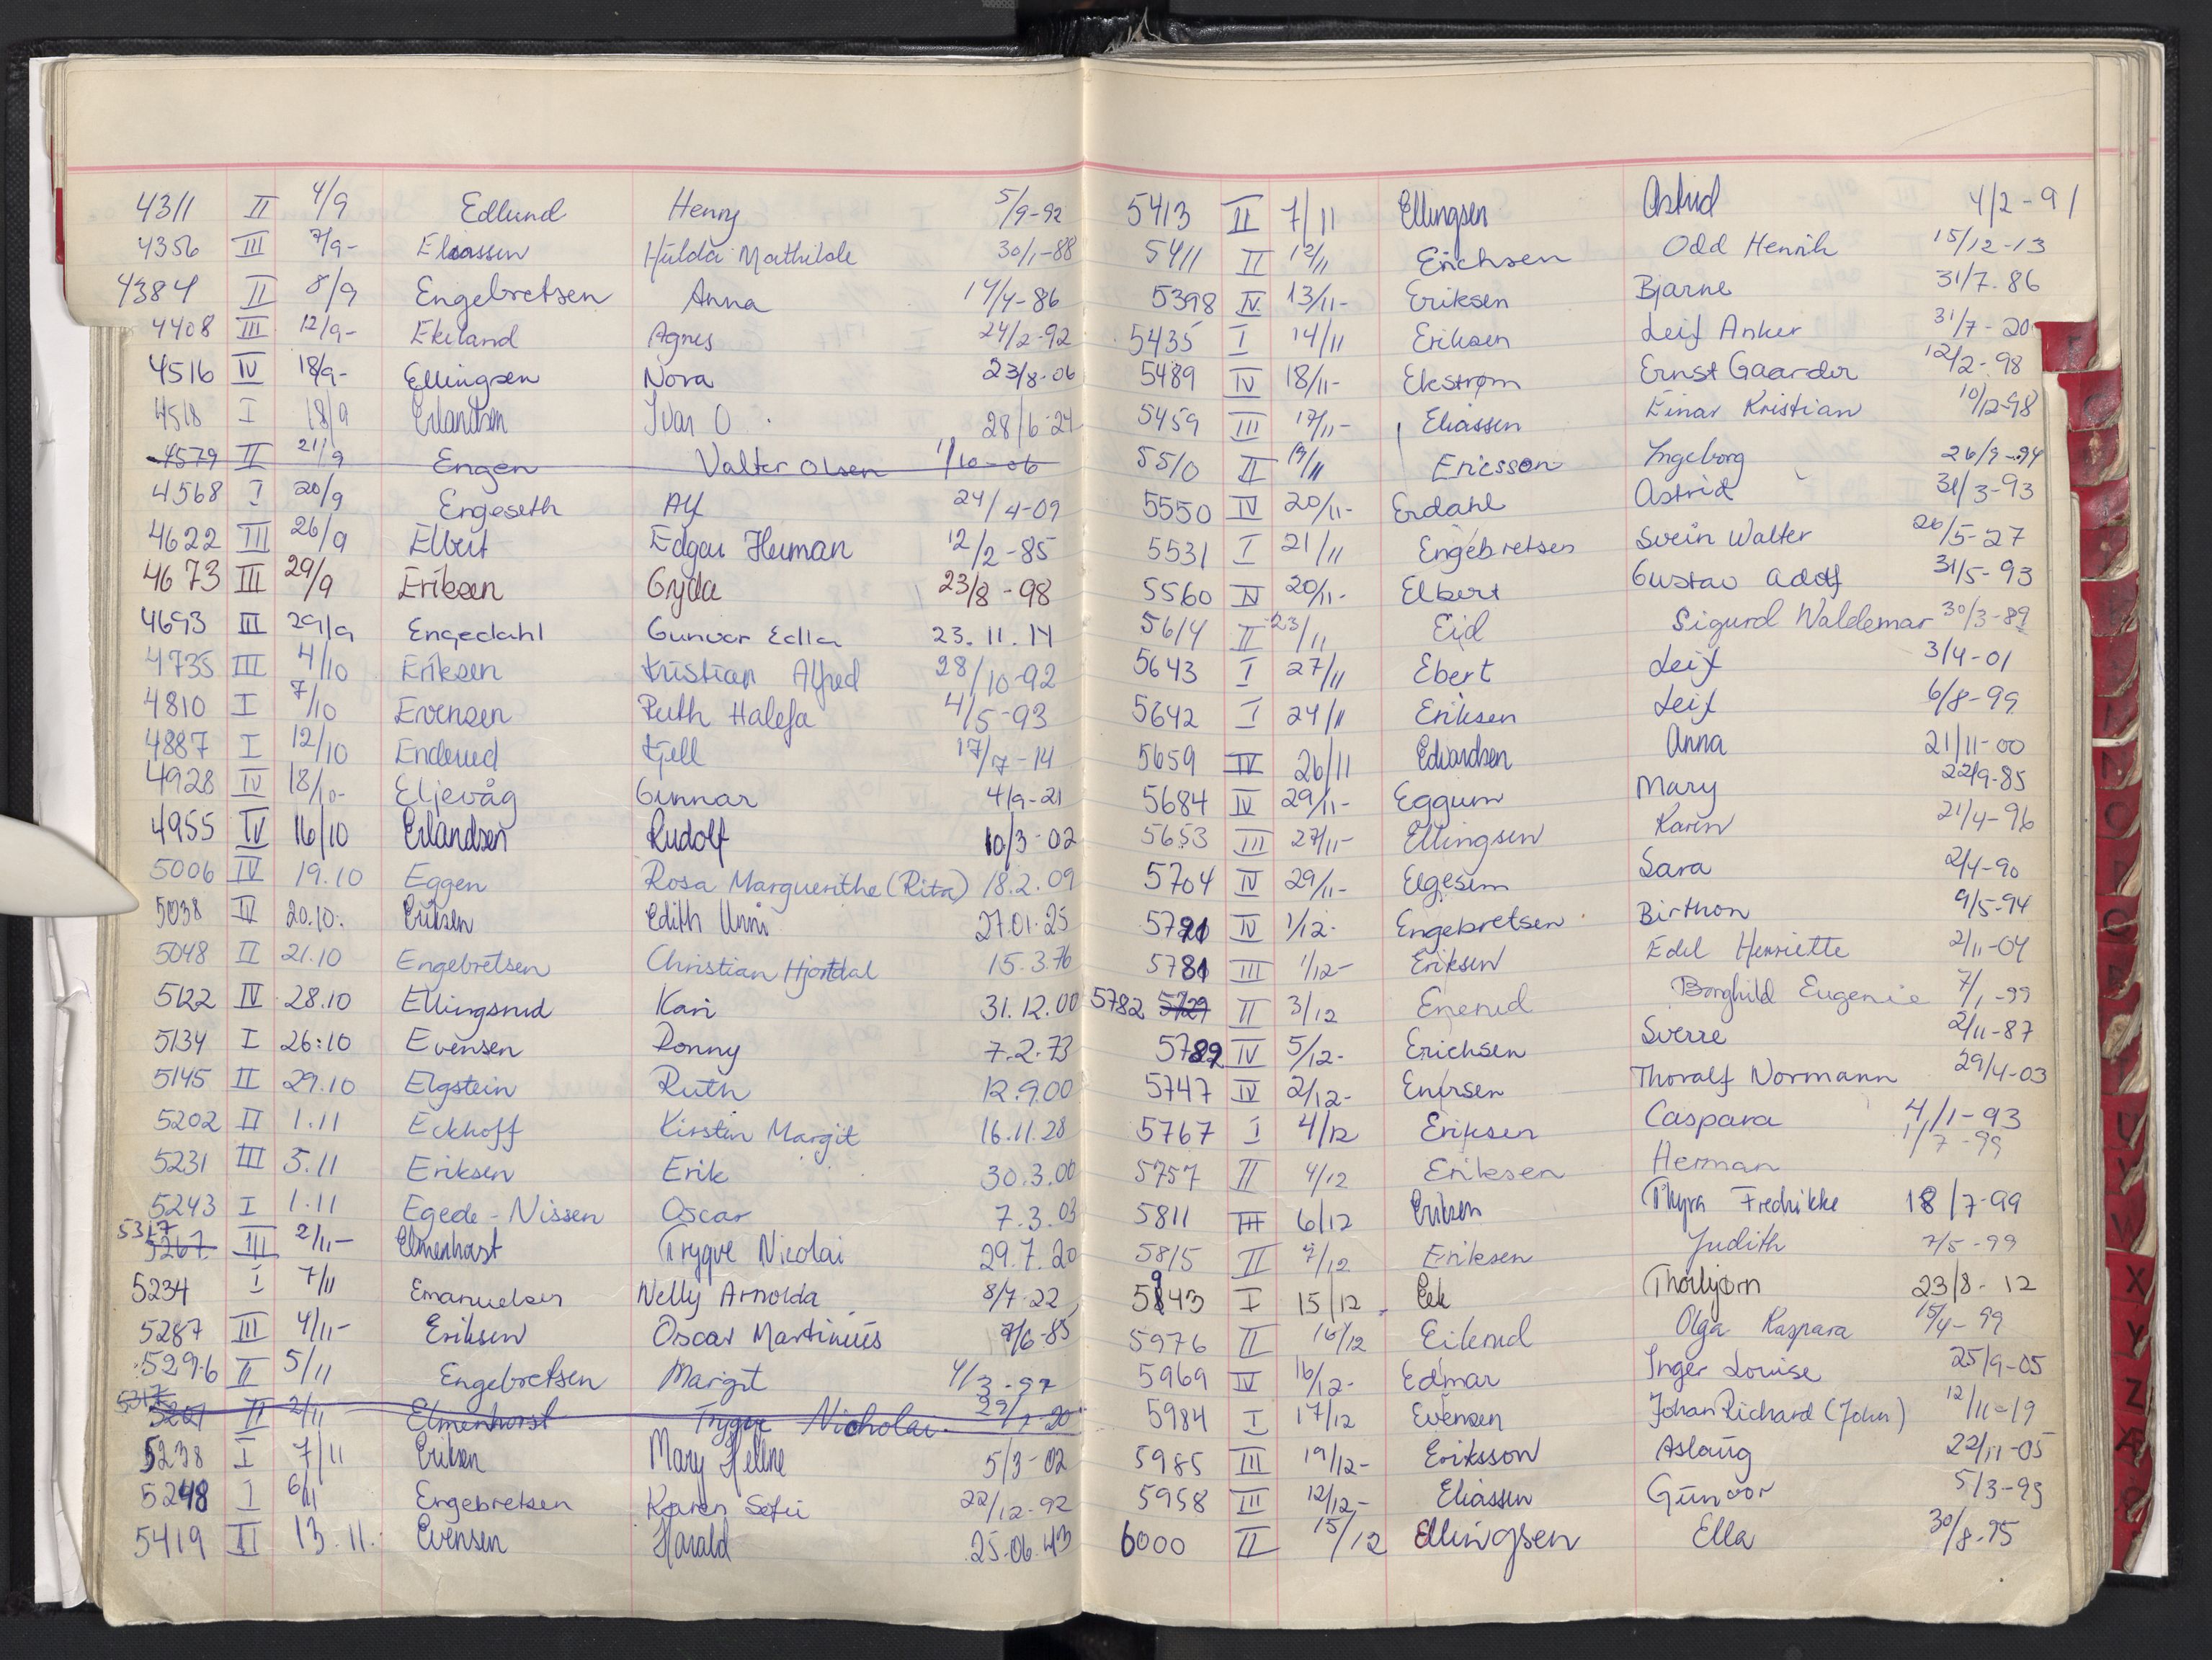 4311 II 4/9 Edlund Henry 5/9-92
4356 III 7/9- Eliassen Hulda Mathilde 30/1-88
4384 II 8/9 Engebretsen Anna 14/4-86
4408 III 12/9- Ekeland Agnes 24/2-92
4516 IV 18/9- Ellingsen Nora 23/8-06
4518 I 18/9 Erlandsen Ivar O 28/6-24
4579 II 21/9 Engen Valter Olsen 1/10-06
4568 I 20/9 Engeseth Alf 24/4-09
4622 III 26/9 Elbert Edgar Herman 12/2-85
4673 III 29/9 Eriksen Gyda 23/8-98
4693 III 29/9 Engedahl Gunvor Edla 23.11.14
4735 III 4/10 Eriksen Kristian Alfred 28/10-92
4810 I 7/10 Evensen Ruth Halefa 4/5-93
4887 I 12/10 Enderud Kjell 17/7-14
4928 IV 18/10- Eljevåg Gunnar 4/9-21
4955 IV 16/10 Erlandsen Rudolf 10/3-02
5006 IV 19.10 Eggen Rosa Marguerithe (Rita) 18.2.09
5038 IV 20.10. Eriksen Edith Unni 27.01.25
5048 II 21.10 Engebretsen Christian Hjortdal 15.3.76
5122 IV 28.10 Ellingsrud Kari 31.12.00
5134 I 26:10 Evensen Ronny 7.2.73
5145 II 29.10 Elgstein Ruth 12.9.00
5202 II 1.11 Eckhoff Kirstin Margit 16.11.28
5231 III 5.11 Eriksen Erik 30.3.00
5243 I 1.11 Egede-Nissen Oscar 7.3.03
5317 5267 III 2/11- Elmenhorst Trygve Nicolai 29.7.20
5234 I 7/11 Emanuelsen Nelly Arnolda 8/7-22
5287 III 4/11- Eriksen Oscar Martinius 7/6-85
5296 II 5/11 Engebretsen Margit 4/3-97
5317 II 2/11 Elmenhorst Trygve Nicholai 29/7-20
5238 I 7/11 Eriksen Mary Helene 5/3-02
5248 I 6/11 Engebretsen Karen Sofie 22/12-92
5419 II 13.11. Evensen Harald 25.06.43
5413 II 7/11 Ellingsen Astrid 4/2-91
5411 II 12/11 Erichsen Odd Henrik 15/12-13
5398 IV 13/11- Eriksen Bjarne 31/7.86
5435 I 14/11 Eriksen Leif Anker 31/7-20
5489 IV 18/11- Ekstrøm Ernst Gaarder 12/2-98
5459 III 17/11- Eliassen Einar Kristian 10/2-98
5510 II 19/11 Ericsson Ingeborg 26/9-94
5550 IV 20/11- Erdahl Astrid 31/3-93
5531 I 21/11 Engebretsen Svein Walter 26/5-27
5560 IV 20/11- Elbert Gustav Adolf 31/5-93
5614 II 23/11 Eid Sigurd Waldemar 30/3-89
5643 I 27/11 Ebert Leif 3/4-01
5642 I 24/11 Eriksen Leif 6/8-99
5659 IV 26/11 Edvardsen Anna 21/11-00
5684 IV 29/11- Eggum Mary 22/9-85
5653 III 27/11- Ellingsen Karin 21/4-96
5704 IV 29/11- Elgesem Sara 2/4-90
IV 1/12- Engebretsen Birthon 9/5-94
5781 III 1/12- Eriksen Edel Henriette 2/11-04
5782 5727 II 3/12 Enerud Borghild Eugenie 7/1-99
5789 IV 5/12- Erichsen Sverre 2/11-87
5747 IV 2/12- Enersen Thoralf Normann 29/4-03
5767 I 4/12 Eriksen Caspara 4/1-93
5757 II 4/12 Eriksen Herman 1/7-99
5811 III 6/12 Eriksen Thyra Fredrikke 18/7-99
5815 II 7/12 Eriksen Judith 7/5-99
5943 I 15/12 Eek Thorbjørn 23/8-12
5976 II 16/12 Eikrud Olga Kaspara 15/4-99
5969 IV 16/12- Edmar Inger Louise 25/9-05
5984 I 17/12 Evensen Johan Richard (John) 12/11-19
5985 III 19/12- Eriksson Aslaug 22/11-05
5958 III 12/12- Eliassen Gunvor 5/3-93
6000 II 15/12 Ellingsen Ella 30/8-95
X
Y
Z